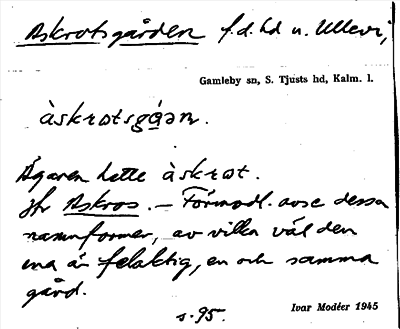 Askrotsgården f.d. hd u. Ullevi,
Gamleby sn, S. Tjusts hd, Kalm. l.
àskrωtsgạ̊ən.
Ägaren hette àskrωt.
Jfr Askros. – Förmodl. avse dessa
namnformer, av vilka väl den
ena är felaktig, en och samma
gård.
s. 95.
Ivar Modéer 1945